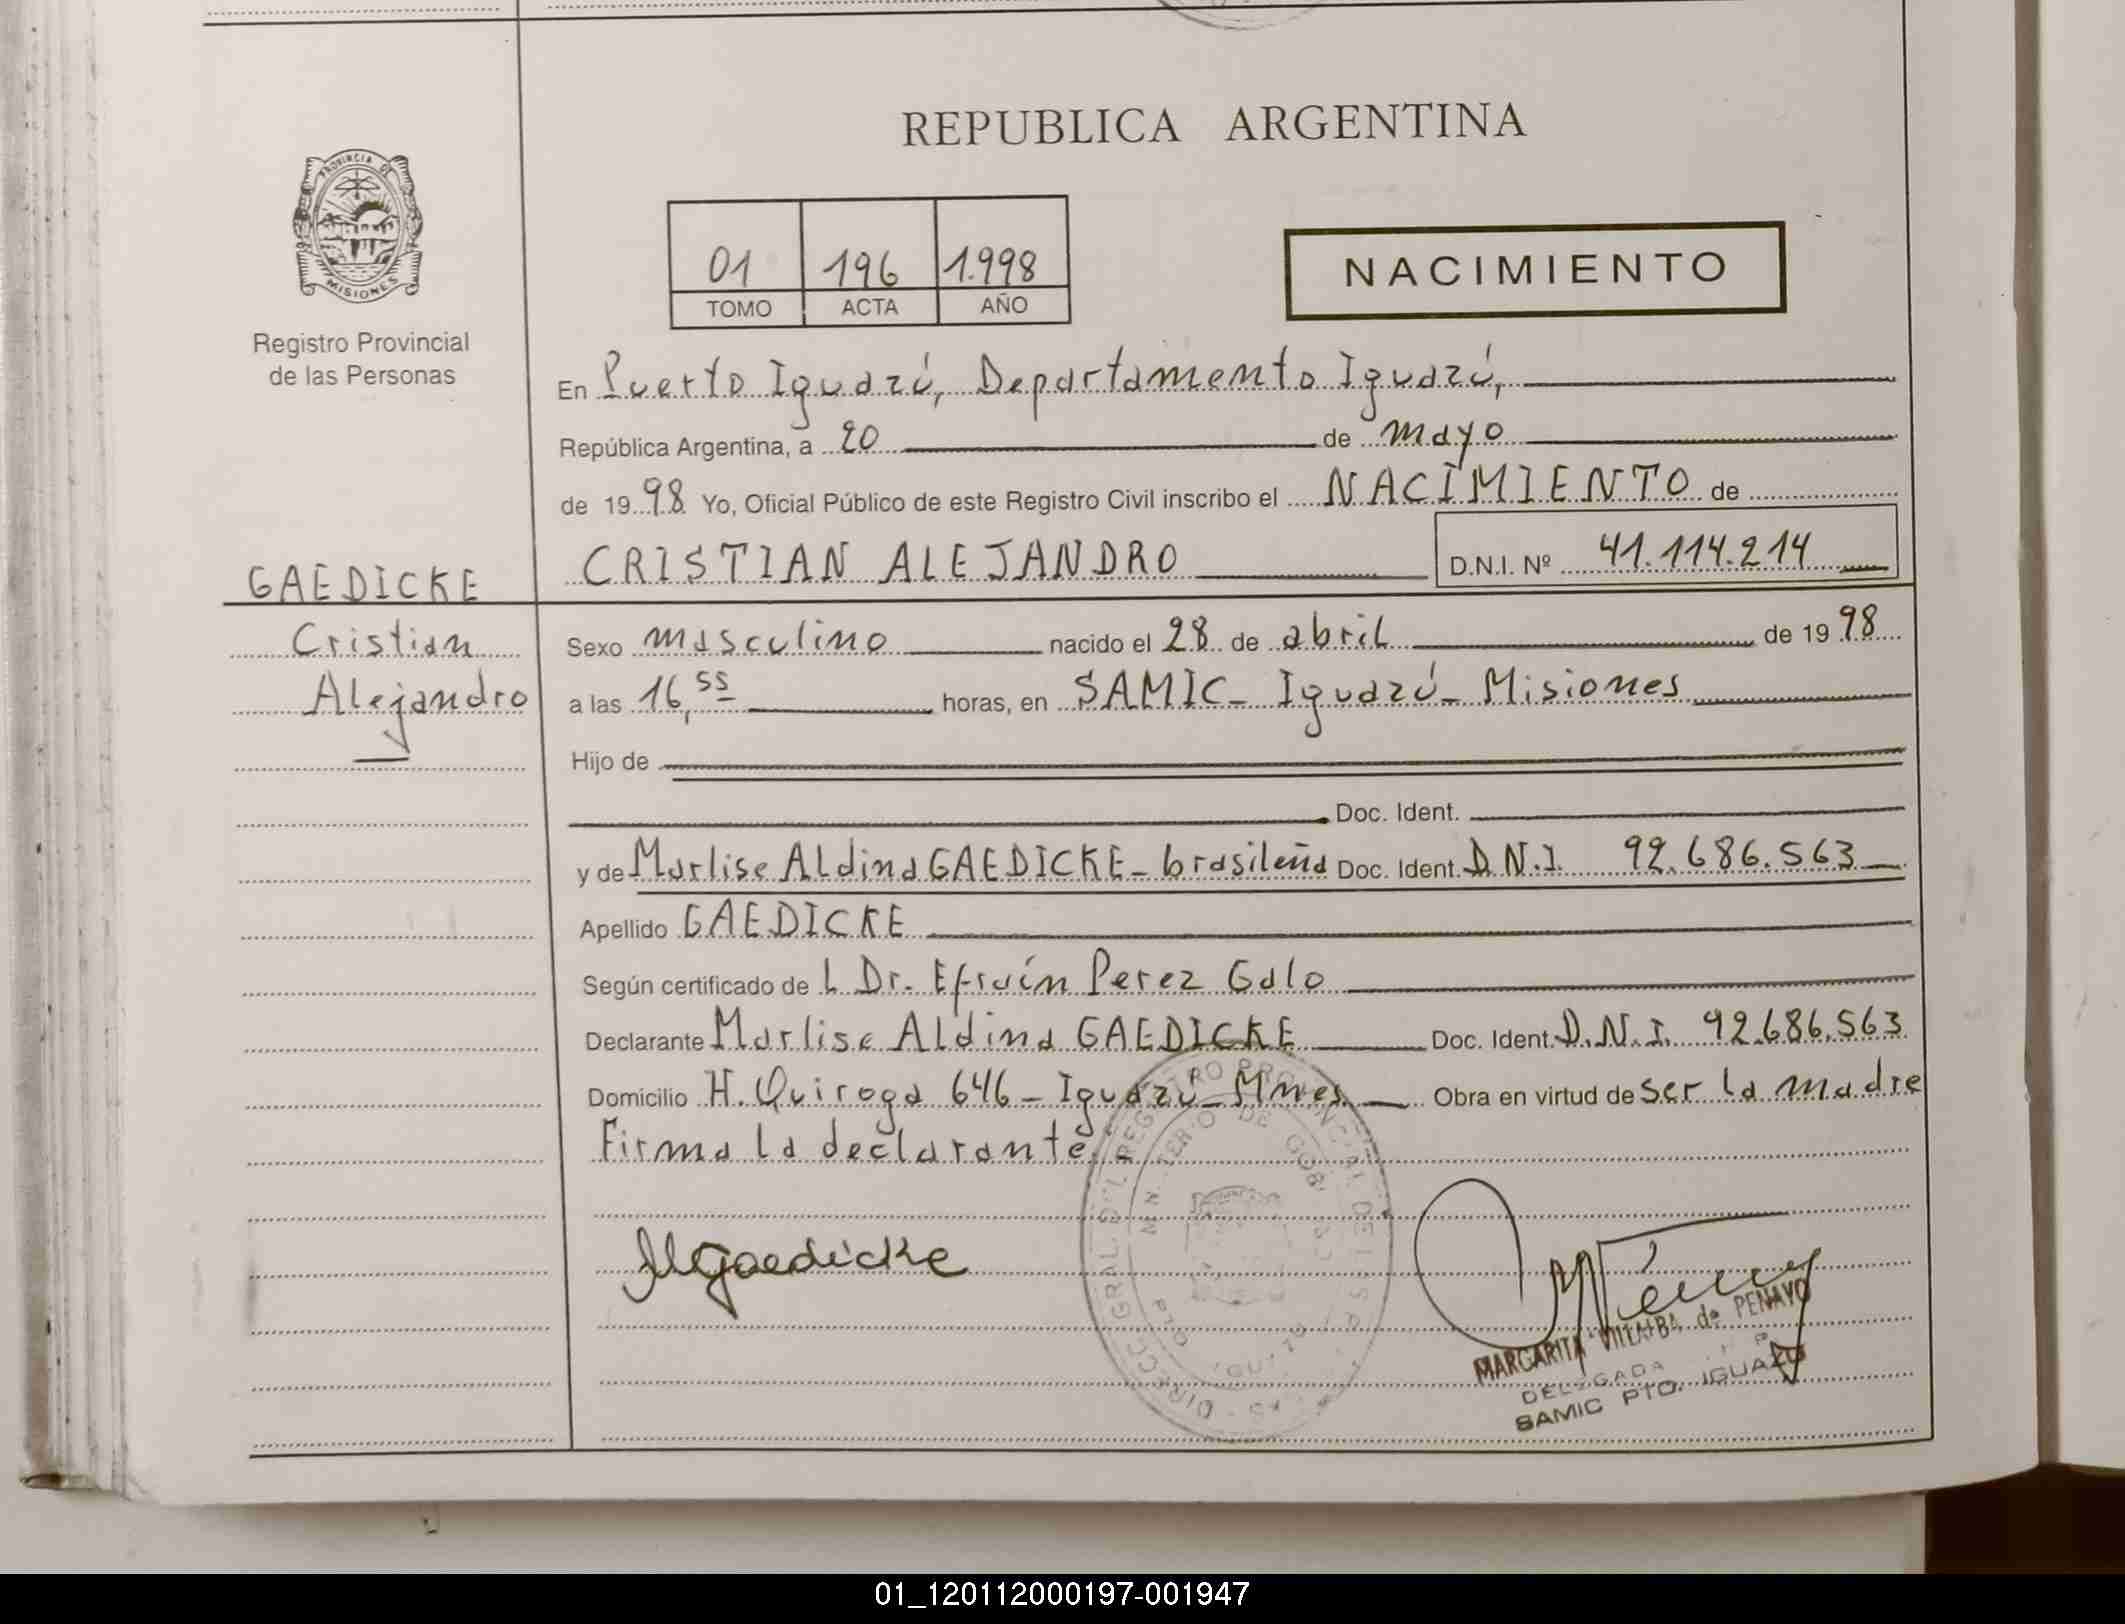 REPUBLICA ARGENTINA
PROVINCIA DE MISIONES
Registro Provincial
de las Personas
01 196 1.998
TOMO ACTA AÑO
NACIMIENTO
En Puerto Iguazú, Departamento Iguazú,
República Argentina, a 20 de mayo
de 1998 Yo, Oficial Público de este Registro Civil inscribo el NACIMIENTO de
CRISTIAN ALEJANDRO D.N.I. Nº 41.114.214
GAEDICKE
Cristian
Alejandro
Sexo masculino nacido el 28 de abril de 1998
a las 16,55 horas, en SAMIC - Iguazú - Misiones
Hijo de
Doc. Ident.
y de Marlise Aldina GAEDICKE - brasileña Doc. Ident. D.N.I. 92.686.563
Apellido GAEDICKE
Según certificado de L Dr. Efraín Perez Galo
Declarante Marlise Aldina GAEDICKE Doc. Ident. D.N.I. 92.686.563
Domicilio H. Quiroga 646 - Iguazú - Mnes. Obra en virtud de ser la madre
Firma la declarante
MGaedicke
MARGARITA VILLALBA de PENAYO
DELEGADA
SAMIC PTO. IGUAZU
01_120112000197-001947